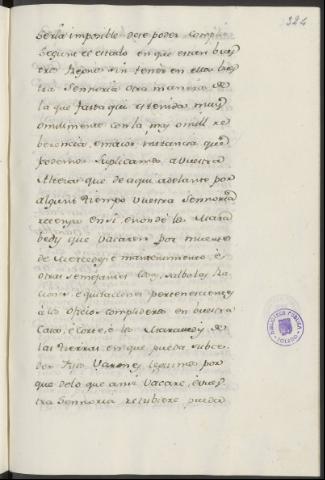 324
sería imposible de se poder complir
segunt el estado en que están bues
tros Reynos sin tener en ellos bues
tra Senhoria otra manera de
la que fasta aqui es tenida muy
omillmente con la muy omill re
berencia, e maior instancia que
podemos suplicamos a Vuestra
Alteza que de aqui adelante por
algunt tiempo vuestra Senhoria
retenga en sí, e non dé los Mara
bedis que vacaren por muertes
de Mercedes, e mantenimientos, e
otras semejantes Cosas, salbo las Ra
ciones, e quitaciones pertenecientes
á los oficios complideros en buestra
Casa, é Corte, é los Maravedis de
las tierras en que pueda subce
der Fijo Varon legitimo, por
que de lo que ansi vacare, e vues
tra Senhoria retubiere pueda
BIBLIOTECA PUBLICA
TOLEDO